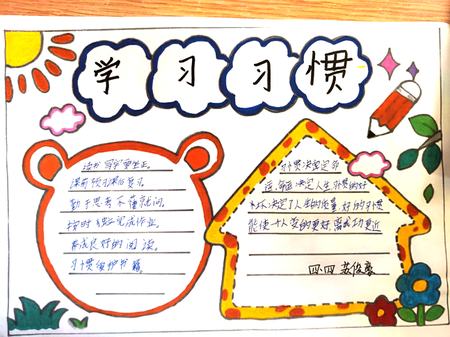 学习习惯
读书写字要坐正。
课前预习课后复习。
勤于思考不懂就问。
按时 完成作业。
养成良好的阅读。
习惯爱护书籍。
习惯决定命
运,命运决定人生,习惯的好
坏决定了人生的质量,好的习惯
能使一个人变的更好,离成功更近
四.四 英俊豪